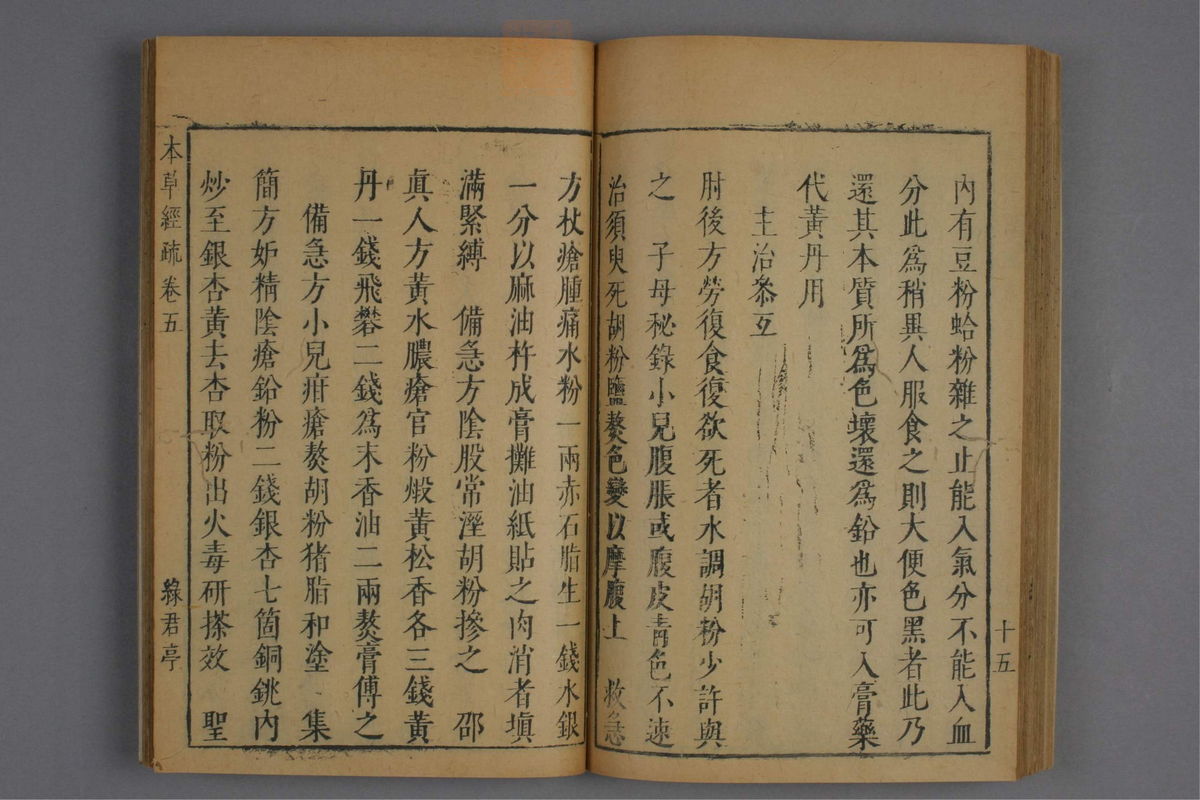 十五
內有豆粉蛤粉雜之止能入氣分不能入血
分此爲稍異人服食之則大便色黑者此乃
還其本質所爲色壞還爲鉛也亦可入膏藥
代黃丹用
主治叅互
肘後方勞復食復欲死者水調胡粉少許與
之　子母秘錄小兒腹脹或腹皮青色不速
治須臾死胡粉鹽熬色變以摩腹上　救急
方杖瘡腫痛水粉一兩赤石脂生一錢水銀
一分以麻油杵成膏攤油紙貼之肉消者塡
滿緊縛　備急方陰股常溼胡粉摻之　邵
眞人方黃水膿瘡官粉煅黃松香各三錢黃
丹一錢飛礬二錢爲末香油二兩熬膏傅之
備急方小兒疳瘡熬胡粉猪脂和塗　集
簡方妬精陰瘡鉛粉二錢銀杏七箇銅銚內
炒至銀杏黃去杏取粉出火毒研搽效　聖
本草經疏卷五
綠君亭